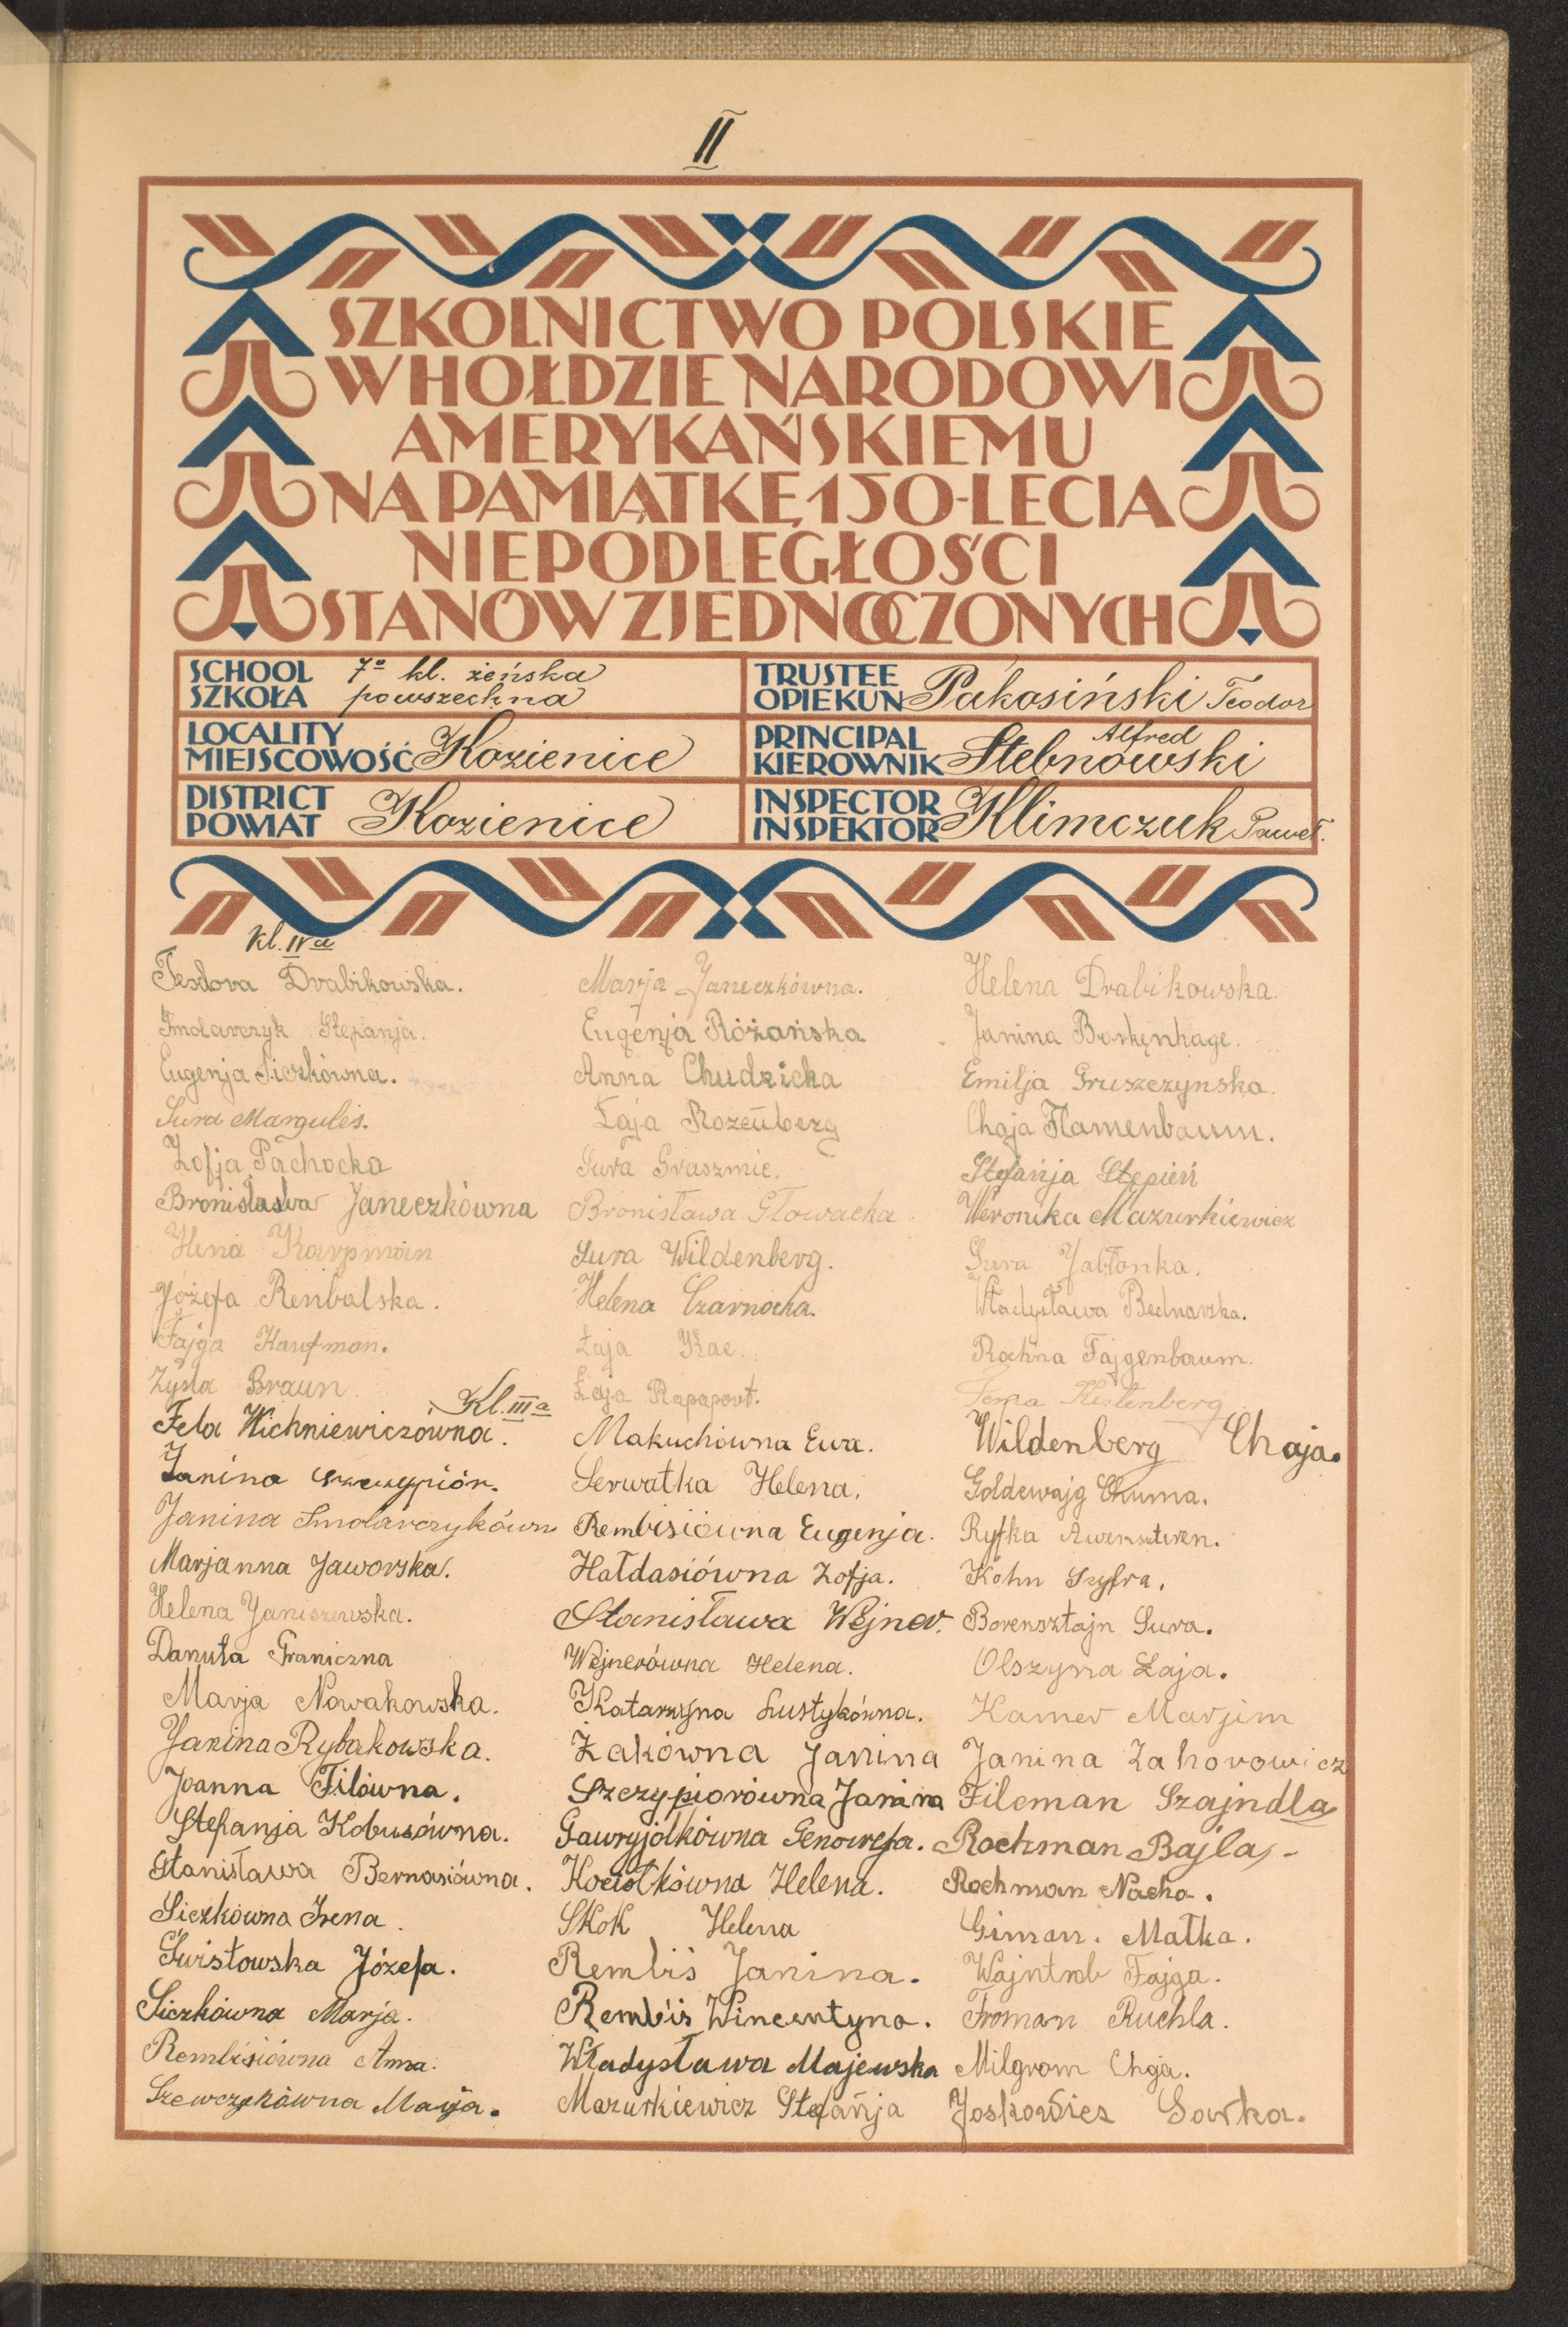 II
SZKOLNICTWO POLSKIE
W HOŁDZIE NARODOWI
AMERYKAŃSKIEMU
NA PAMIĄTKĘ 150-LECIA
NIEPODLEGŁOŚCI
STANÓW ZJEDNOCZONYCH
SCHOOL
SZKOŁA
7º kl. żeńska
powszechna
TRUSTEE
OPIEKUN
Pakosiński Teodor
LOCALITY
MIEJSCOWOŚĆ
Kozienice
PRINCIPAL
KIEROWNIK
Alfred
Stebnowski
DISTRICT
POWIAT
Kozienice
INSPECTOR
INSPEKTOR
Klimczuk Paweł.
kl. IVa
Teodora Drabikowska.
Smolarczyk Stefanja.
Eugenja Siczkówna.
Sura Margulis.
Zofja Pachocka
Bronisława Janeczkówna
Hena Karpman
Józefa Renbalska.
Fajga Kaufman.
Zysla Braun.
Marja Janeczkówna.
Eugenja Różańska
Anna Chudzicka
Łaja Rozenberg
Sura Graszmic.
Bronisława Głowacka
Sura Wildenberg.
Helena Czarnocka.
Łaja Kac.
Łaja Rapaport.
Helena Drabikowska.
Janina Borkenhage.
Emilja Gruszczynska.
Chaja Flamenbaum.
Stefańja Stępień
Weronika Mazurkiewicz
Sura Jabłonka.
Władysława Bednarska.
Rochna Fajgenbaum.
Kestenberg
Kl. IIIa
Fela Wichniewiczówna.
Janina Szczypiór.
Janina Smolarczykówn
Marjanna Jaworska.
Helena Janiszewska.
Danuta Graniczna
Marja Nowakowska.
Janina Rybakowska.
Joanna Filówna.
Stefanja Kobusówna.
Stanisława Bernasiówna.
Siczkówna Irena.
Świstowska Józefa.
Siczkówna Marja.
Rembisiówna Anna.
Szewczykówna Marja.
Makuchówna Ewa.
Serwatka Helena.
Rembisiówna Eugenja.
Hałdasiówna Zofja.
Stanisława Wejner.
Wejnerówna Helena.
Katarzyna Lustykówna.
Żakówna Janina
Szczypiorówna Janina
Gawryjołkówna Genowefa.
Kociołkówna Helena.
Skok Helena
Rembiś Janina.
Rembiś Wincentyna.
Władysława Majewska
Mazurkiewicz Stefańja
Wildenberg Chaja.
Goldewajg Chuma.
Ryfka Awerszteren.
Kohn Szyfra.
Borensztajn Sura.
Olszyna Łaja.
Kamer Marjim
Janina Zahorowicz
Fileman Szajndla
Rochman Bajla,-
Rochman Nacha.
Giman. Małka.
Wajntrob Fajga.
Froman Ruchla.
Milgrom Chaja.
Joskowicz Sorka.